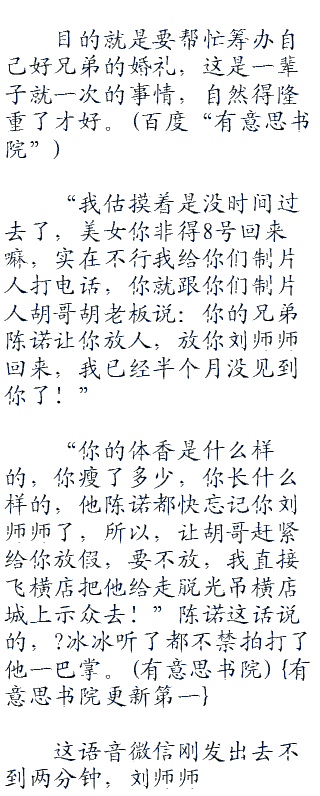 目的就是要帮忙筹办自
己好兄弟的婚礼，这是一辈
子就一次的事情，自然得隆
重了才好。(百度“有意思书
院”)
“我估摸着是没时间过
去了，美女你非得8号回来
嘛，实在不行我给你们制片
人打电话，你就跟你们制片
人胡哥胡老板说：你的兄弟
陈诺让你放人，放你刘师师
回来，我已经半个月没见到
你了！”
“你的体香是什么样
的，你瘦了多少，你长什么
样的，他陈诺都快忘记你刘
师师了，所以，让胡哥赶紧
给你放假，要不放，我直接
飞横店把他给走脱光吊横店
城上示众去！”陈诺这话说
的，?冰冰听了都不禁拍打了
他一巴掌。(有意思书院){有
意思书院更新第一}
这语音微信刚发出去不
到两分钟，刘师师